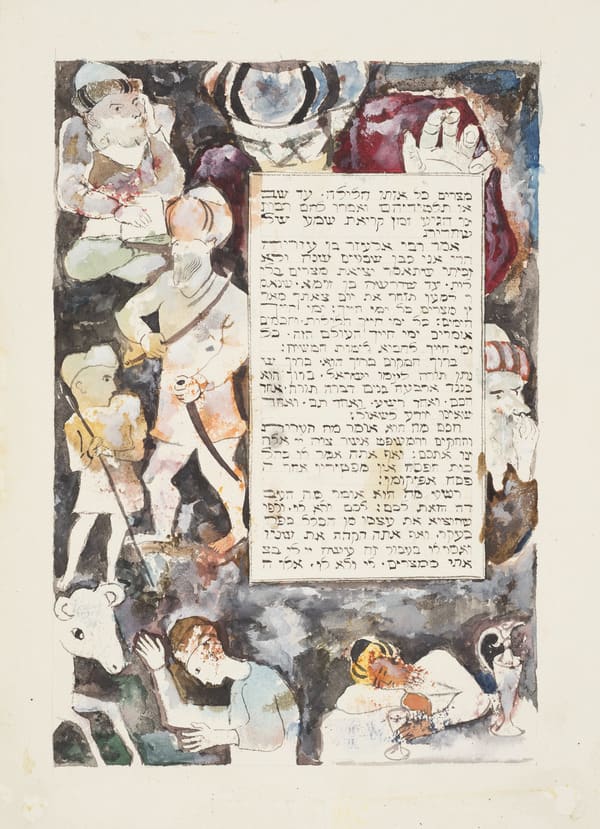 מצרים כל אותו הלילה. עד שב
או תלמידיהם ואמרו להם רבות
נו הגיע זמן קריאת שמע של
שחרית:
אמר רבי אלעזר בן עזריה
הרי אני כבן שבעים שנה ולא
זכיתי שתאמר יציאת מצרים בלי
לות. עד שדרשה בן זומא. שנאמ
ר למען תזכר את יום צאתך מאר
ץ מצרים כל ימי חייך: ימי חייך
הימים: כל ימי חייך הלילות. וחכמים
אומרים ימי חייך העולם הזה. כל
ימי חייך להביא לימות המשיח:
ברוך המקום ברוך הוא ברוך
נתן תורה לעמו ישראל. ברוך הוא
כנגד ארבעה בנים דברה תורה. אחד
חכם. ואחד רשע. ואחד תם. ואחד
שאינו יודע לשאול:
חכם מה הוא אומר מה העדות
והחקים והמשפט אשר צוה יי אלה
ינו אתכם: ואף אתה אמר לו כהל
כות הפסח אין מפטירין אחר ה
פסח אפיקומן:
רשע מה הוא אומר מה העב
דה הזאת לכם: לכם ולא לו. ולפי
שהוציא את עצמו מן הכלל כפר
בעקר. ואף אתה הקהה את שניו
ואמר לו בעבור זה עשה יי לי בצ
אתי ממצרים. לי ולא לו. אלו ה